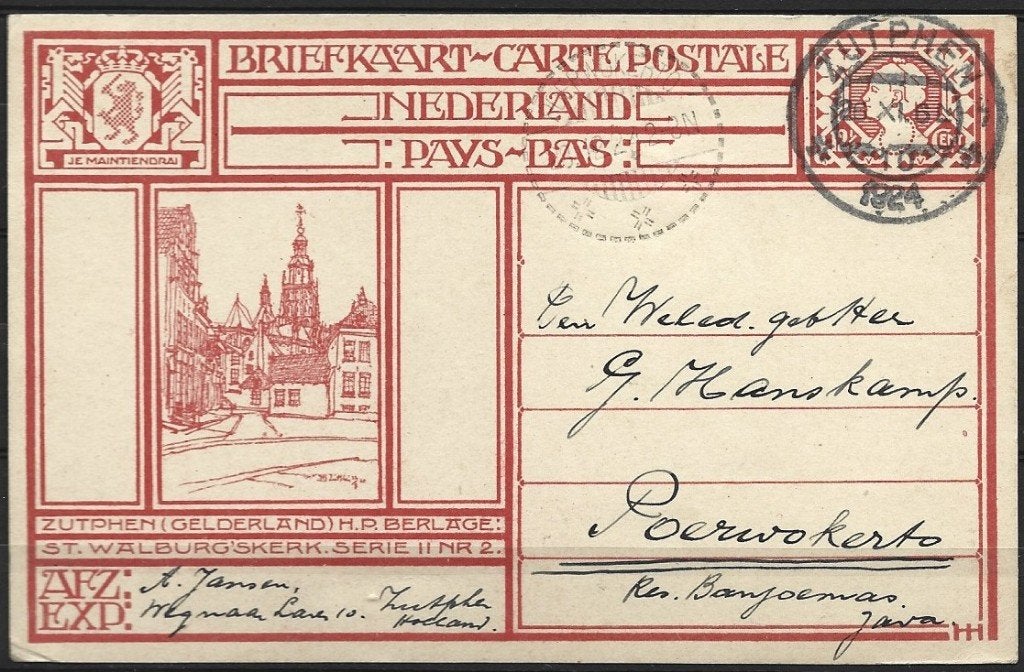 BRIEFKAART~CARTE POSTALE
NEDERLAND
PAYS-BAS:
JE MAINTIENDRAI
ZUTPHEN
1924
ZUTPHEN (GELDERLAND) H.P. BERLAGE:
ST. WALBURG'SKERK. SERIE II NR 2.
AFZ: A. Jansen,
EXP: Laren 10. Zutphen
Holland.
Den Weled. geb Heer
G. Hanskamp.
Poerwokerto
Res. Banjoemas.
Java.